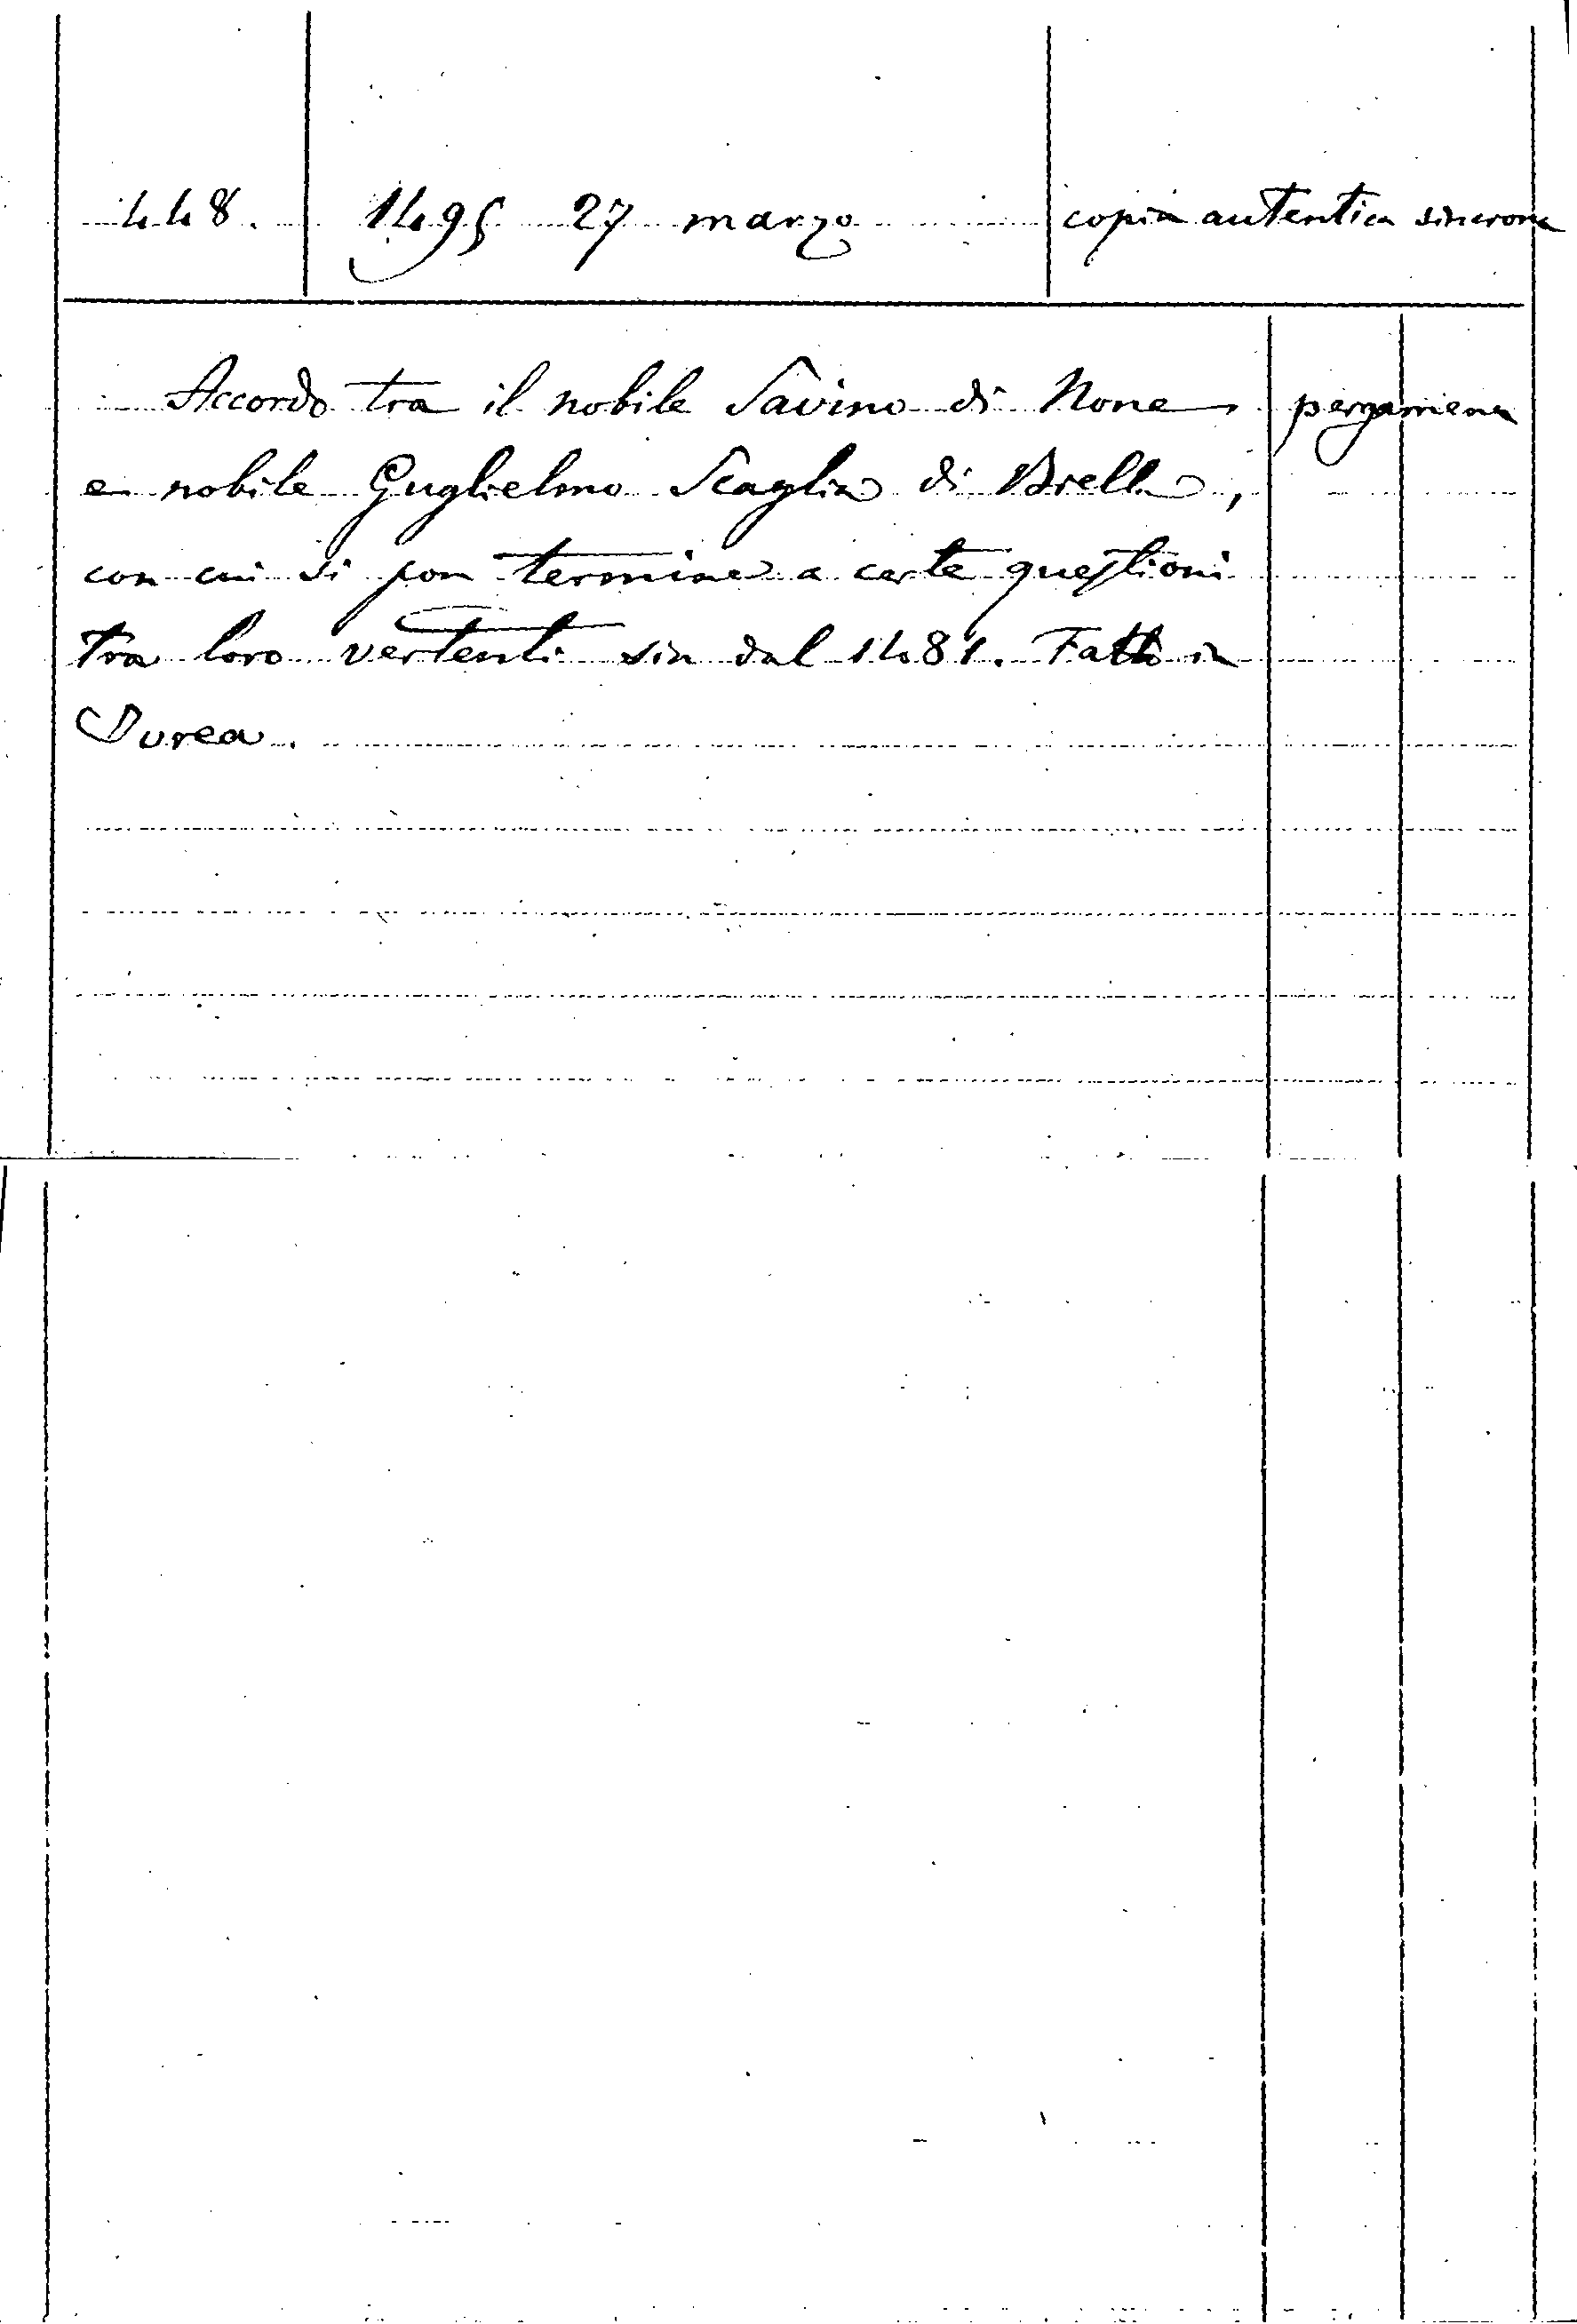 448. 1495 27 marzo copia autentica sincrona
Accordo tra il nobile Savino di None pergamena
e nobile Guglielmo Scaglia di Biella,
con cui si pon termine a certe questioni
tra loro vertenti sin dal 1481. Fatto in
Ivrea.